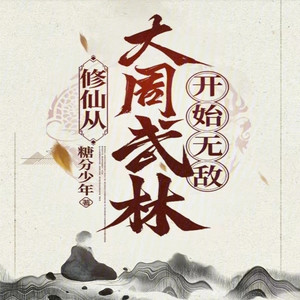 修仙从
大周武林
开始无敌
糖分少年著